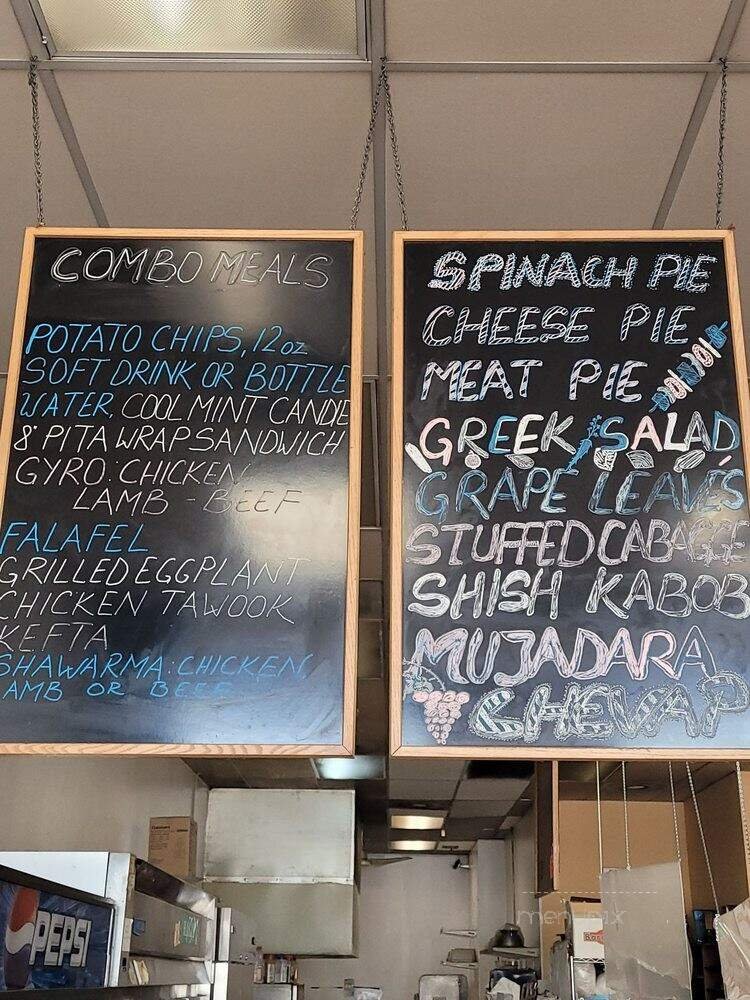 COMBO MEALS
POTATO CHIPS, 12oz
SOFT DRINK OR BOTTLE
WATER, COOL MINT CANDIE
8" PITA WRAP SANDWICH
GYRO: CHICKEN
LAMB - BEEF
FALAFEL
GRILLED EGGPLANT
CHICKEN TAWOOK
KEFTA
SHAWARMA: CHICKEN,
AMB OR BEEF
SPINACH PIE
CHEESE PIE
MEAT PIE
GREEK SALAD
GRAPE LEAVES
STUFFED CABAGGE
SHISH KABOB
MUJADARA
CHEVAP
PEPSI
menupix